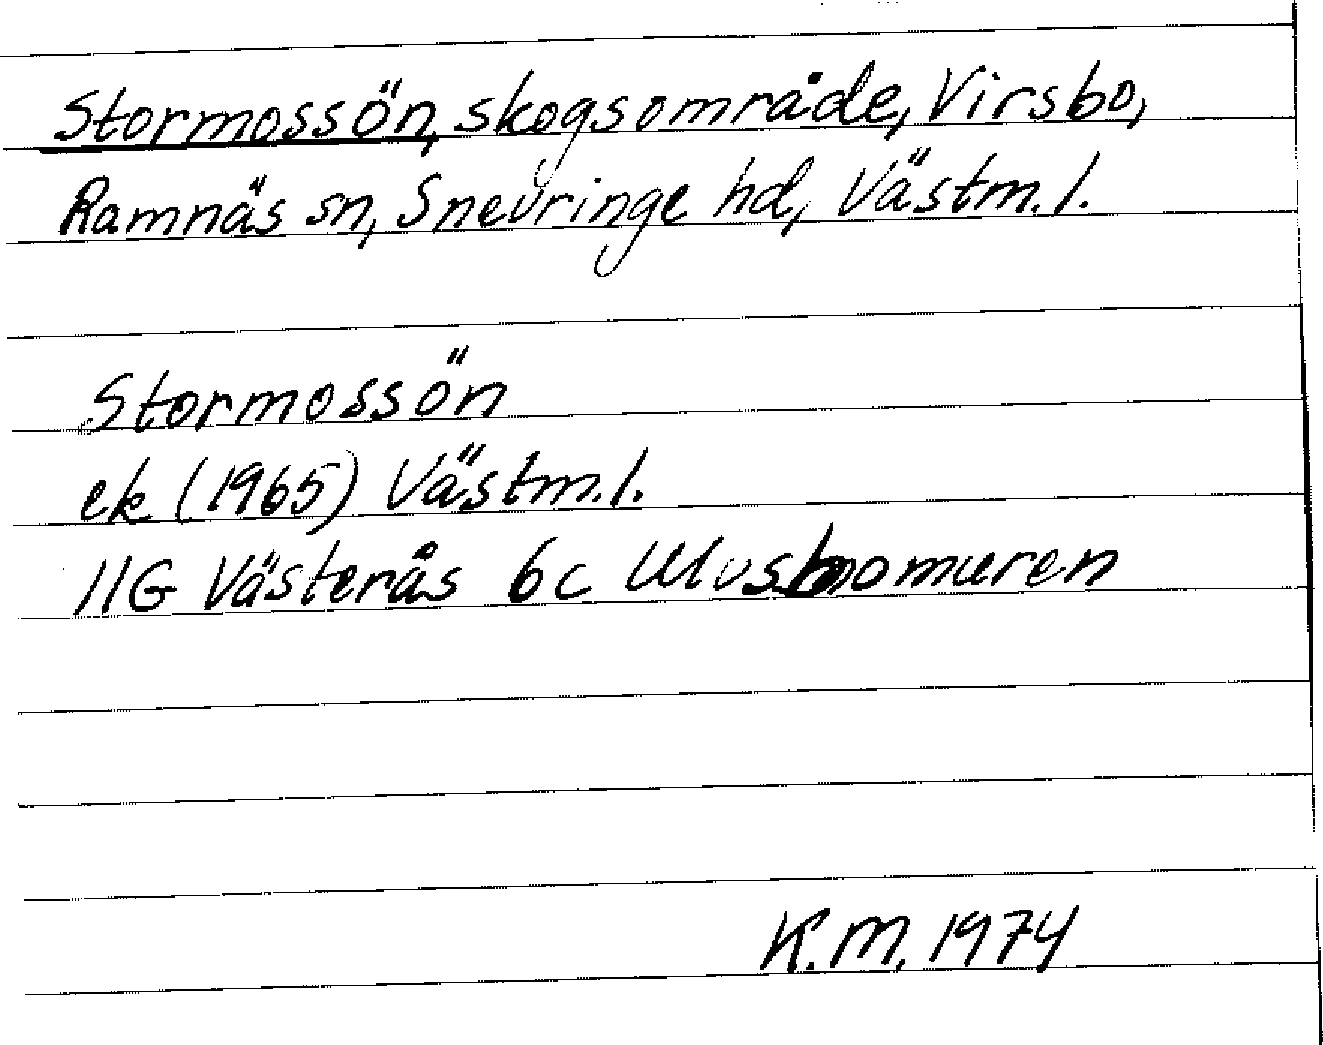 Stormossön, skogsområde, Virsbo,
Ramnäs sn, Snevringe hd, Västm. l.
Stormossön
ek (1965) Västm. l.
11G Västerås 6c
K.M. 1974